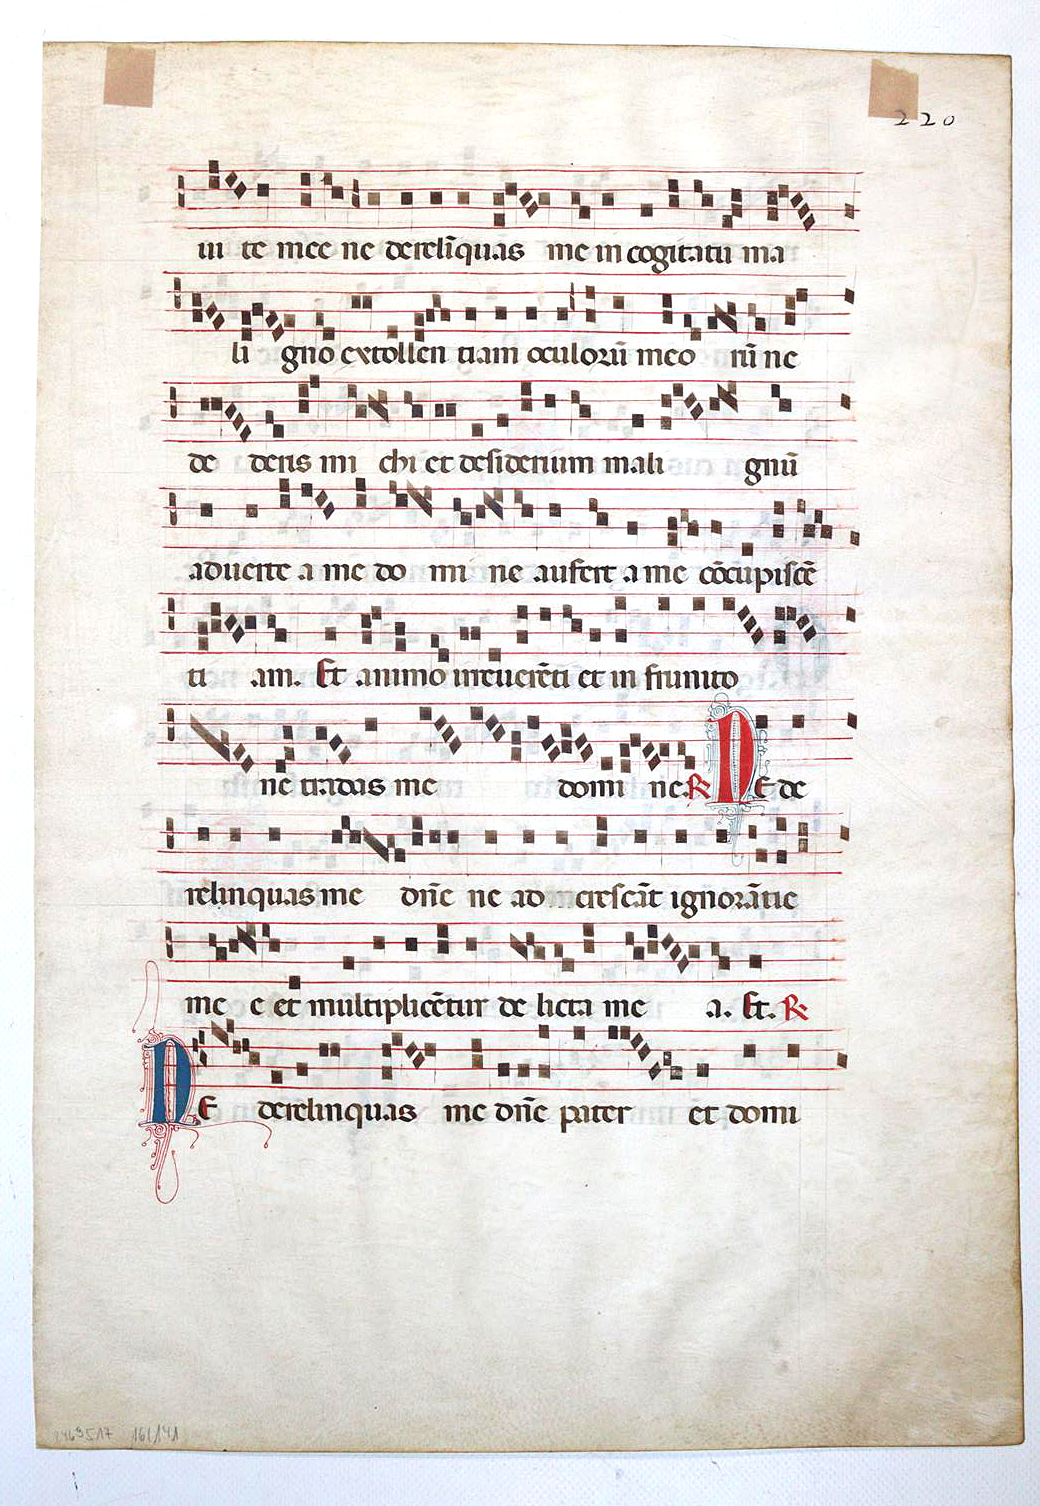 220
ui te mee ne derelīquas me in cogitatu ma
li gno extollen tiam oculorū meo rū ne
de deris mi chi et desiderium mali gnū
aduerte a me do mi ne aufert a me cōcupiscē
ti am. Et animo irreuerēti et in frunito
ne tradas me domi ne. R NE de
relinquas me dn̄e ne ad crescāt ignorātie
me e et multiplicētur de licta me a. Et. R
NE derelinquas me dn̄e pater et domi